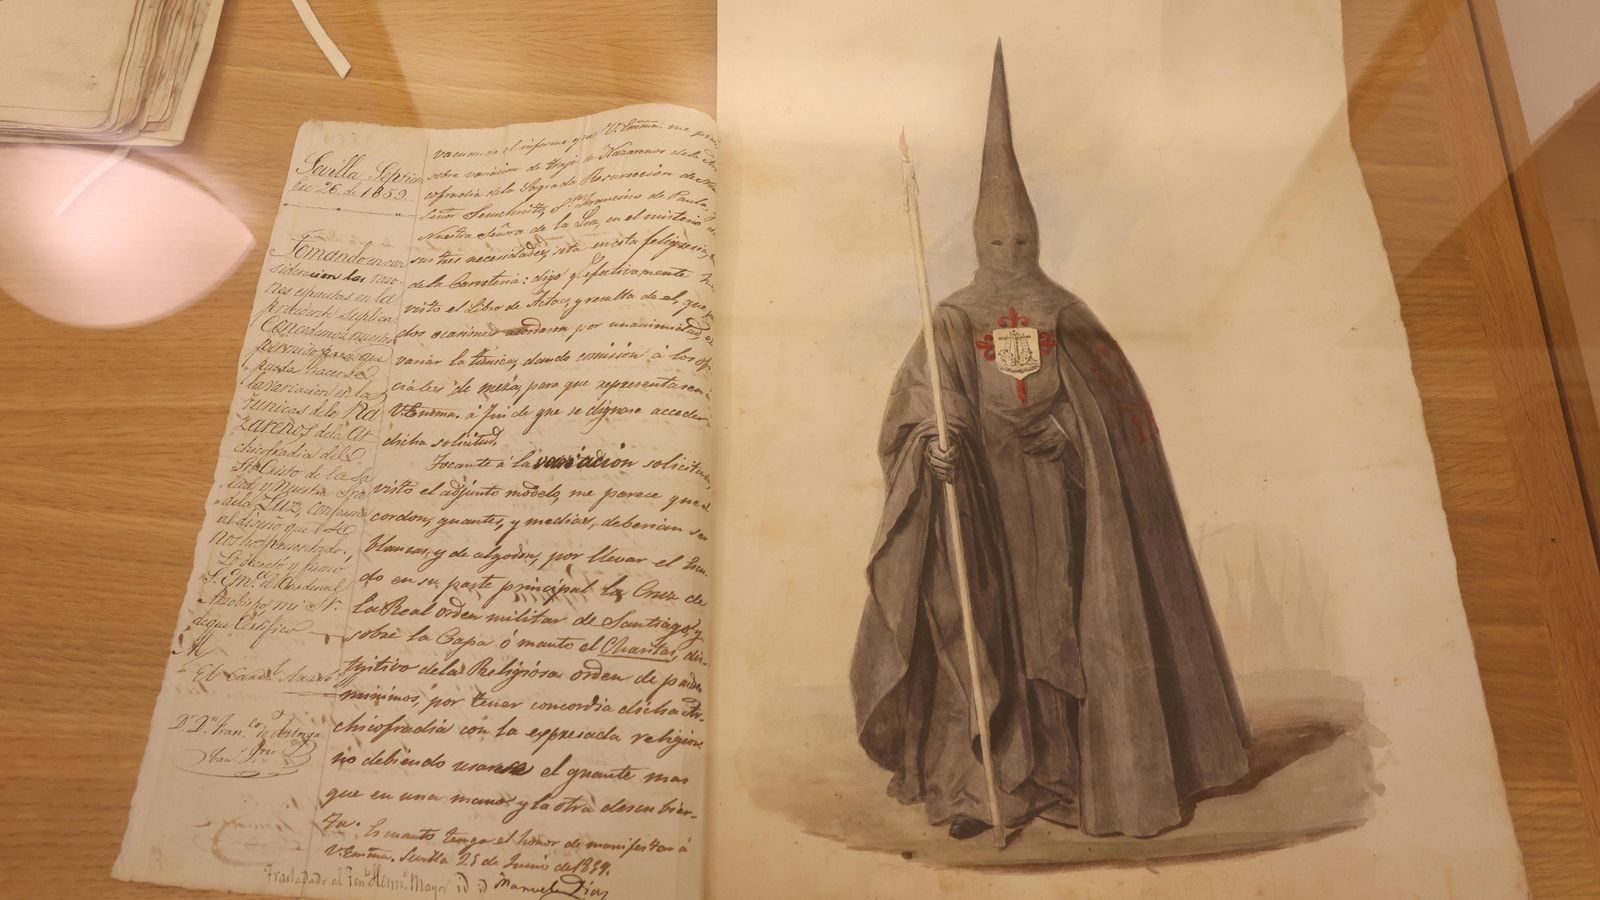 Sevilla Septiem
bre 26 de 1859
Tomando en con
sideracion las razo
nes espuestas en la
precedente suplica,
Concedemos nuestro
permiso para que
pueda hacerse
la variacion en las
Tunicas de los Na
zarenos de la Ar
chicofradia del
Smo Cristo de la Sa
lud y Nuestra Sra
de la Luz, conforme
al diseño que se
nos ha presentado.
Lo decretó y firmó
S. Emª. el Cardenal
Arzobispo mi Sr.
de que Certifico
El Card.l Arzob
vacuando el informe que V. Emma. me
sobre variacion de traje de Nazarenos de la
cofradia de la Sagrada Resurreccion de
Señor Jesuchristo, Sn. Francisco de Paula,
Nuestra Señora de la Luz, en el misterio
sus tres necesidades, sita en esta feligresia
de la Carreteria: digo q.e efectivamente
visto el Libro de Actas, y resulta de el, que
dos ocasiones acordaron por unanimidad,
variar la tunica, dando comision á los ofi
ciales de mesa, para que representasen
V. Emma. á fin de que se dignase acceder
dicha solicitud.
Tocante á la variacion solicitada,
visto el adjunto modelo, me parece que el
cordon, guantes, y medias, deberian ser
blancas, y de algodon, por llevar el Escu-
do en su parte principal la Cruz de
la Real orden militar de Santiago, y
sobre la Capa ó manto el Charitas, dis-
tintivo de la Religiosa orden de padres
minimos, por tener concordia dicha Ar-
chicofradia con la espresada religion
no debiendo usarse el guante mas
que en una mano y la otra descubier-
ta. Es cuanto tengo el honor de manifestar á
V. Emma. Sevilla 25 de Junio de 1859.
Trasladado al Hermº Mayor Manuel Diaz